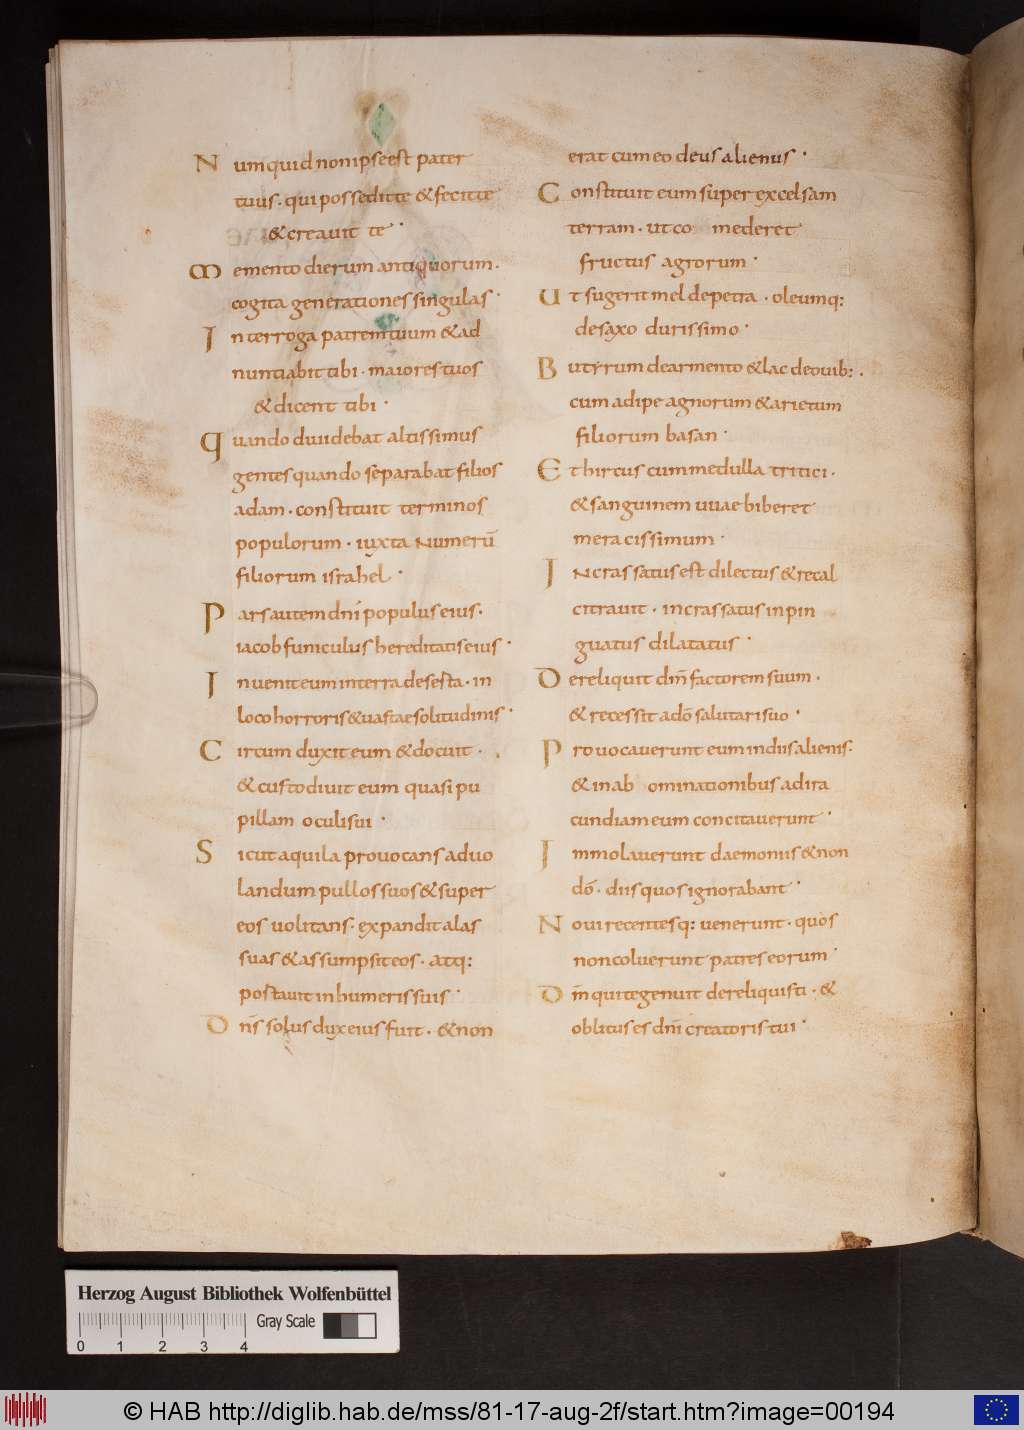 Numquid non ipse est pater
tuus· qui possedit te & fecit te
& creavit te·
Memento dierum antiquorum·
cogita generationes singulas·
Interroga patrem tuum & ad
nuntiabit tibi· maiores tuos
& dicent tibi·
Quando dividebat altissimus
gentes quando separabat filios
adam· constituit terminos
populorum· iuxta Numerū
filiorum israhel·
Pars autem dn̄i populus eius·
iacob funiculus hereditatis eius·
Invenit eum in terra deserta· in
loco horroris & uastae solitudinis·
Circum duxit eum & docuit·
& custodivit eum quasi pu
pillam oculi sui·
Sicut aquila provocans ad uo
landum pullos suos & super
eos uolitans· expandit alas
suas & assumpsit eos· atq:
portavit in humeris suis·
Dn̄s solus dux eius fuit· & non
erat cum eo deus alienus·
Constituit eum super excelsam
terram· ut co mederet
fructus agrorum·
Ut sugerit mel de petra· oleumq:
de saxo durissimo·
Butyrum de armento & lac de ouib:·
cum adipe agnorum & arietum
filiorum basan·
Et hircus cum medulla tritici·
& sanguinem uuae biberet
meracissimum·
INcrassatus est dilectus & recal
citravit· incrassatus inpin
guatus dilatatus·
Dereliquit dm̄ factorem suum·
& recessit a dō salutari suo·
Provocaverunt eum in diis alienis·
& in ab ominationibus ad ira
cundiam eum concitaverunt·
Immolaverunt daemoniis & non
dō· diis quos ignorabant·
Novi recentesq: uenerunt· quos
non coluerunt patres eorum·
Dm̄ qui te genuit dereliquisti· &
oblitus es dn̄i creatoris tui·
Herzog August Bibliothek Wolfenbüttel
Gray Scale
0 1 2 3 4
© HAB http://diglib.hab.de/mss/81-17-aug-2f/start.htm?image=00194